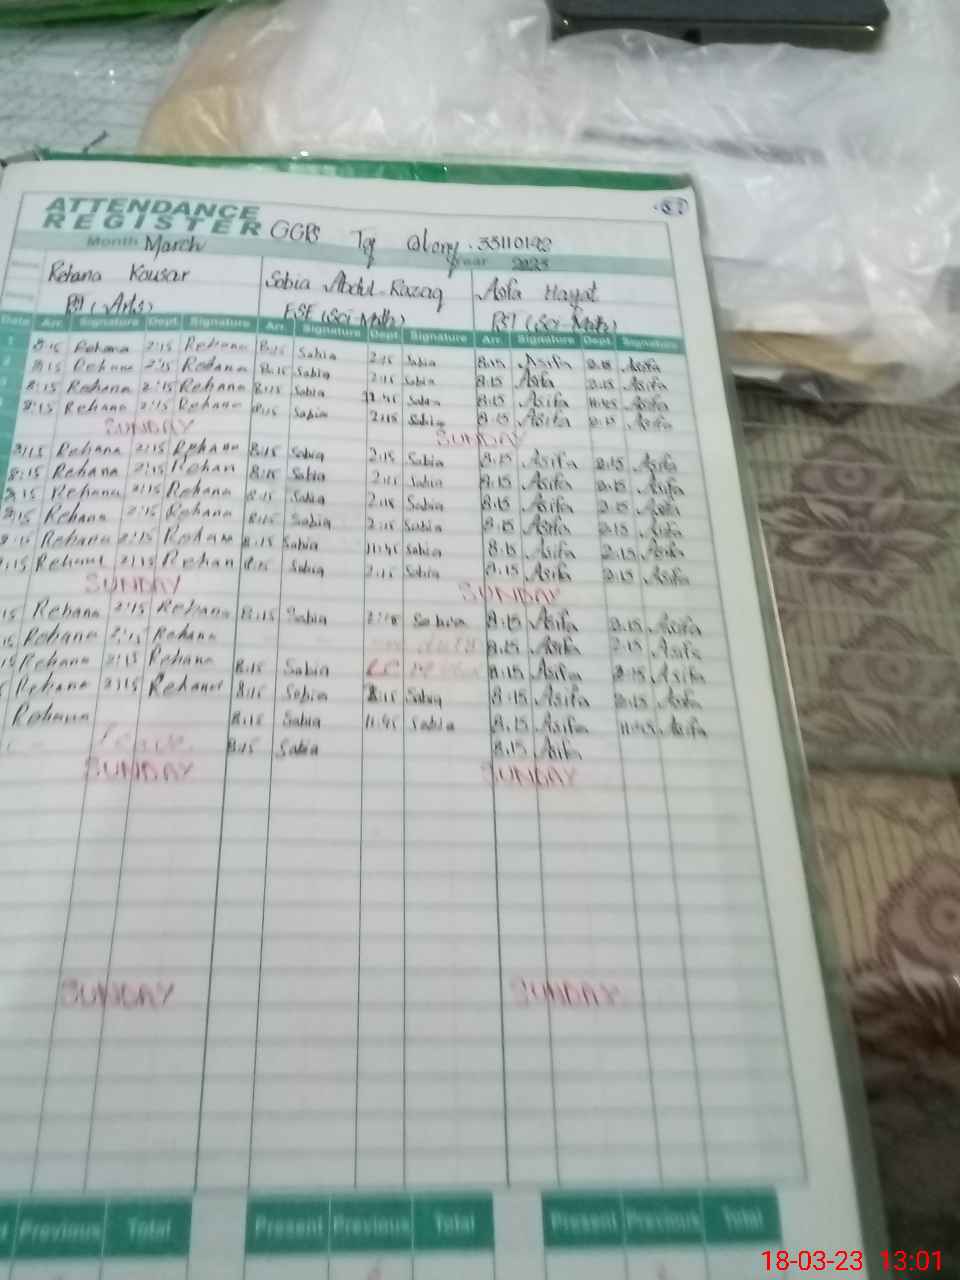 ATTENDANCE
REGISTER GGPS Tq 33110192
Month March Year 2023
Rehana Kousar Sobia Abdul Razaq Asfa Hayat
PST (Arts) ESE (Sci-Math) PST (Sci-Math)
Date Arr. Signature Dept Signature Arr. Signature Dept Signature Arr. Signature Dept. Signature
1 8:15 Rehana 2:15 Rehana 8:15 Sabia 2:15 Sabia 8:15 Asifa 2:15 Asifa
8:15 Rehana 2:15 Rehana 8:15 Sabia 2:15 Sabia 8:15 Asifa 2:15 Asifa
8:15 Rehana 2:15 Rehana 8:15 Sabia 11:45 Sabia 8:15 Asifa 11:45 Asifa
8:15 Rehana 2:15 Rehana 8:15 Sabia 2:15 Sabia 8:15 Asifa 2:15 Asifa
SUNDAY SUNDAY
8:15 Rehana 2:15 Rehana 8:15 Sabia 2:15 Sabia 8:15 Asifa 2:15 Asifa
8:15 Rehana 2:15 Rehan 8:15 Sabia 2:15 Sabia 8:15 Asifa 2:15 Asifa
8:15 Rehana 2:15 Rehana 8:15 Sabia 2:15 Sabia 8:15 Asifa 2:15 Asifa
8:15 Rehana 2:15 Rehana 8:15 Sabia 2:15 Sabia 8:15 Asifa 2:15 Asifa
8:15 Rehana 2:15 Rehana 8:15 Sabia 11:45 Sabia 8:15 Asifa 2:15 Asifa
8:15 Rehana 2:15 Rehan 8:15 Sabia 2:15 Sabia 8:15 Asifa 2:15 Asifa
SUNDAY SUNDAY
15 Rehana 2:15 Rehana 8:15 Sabia 2:15 Sabia 8:15 Asifa 2:15 Asifa
15 Rehana 2:15 Rehana on duty 8:15 Asifa 2:15 Asifa
15 Rehana 2:15 Rehana 8:15 Sabia 8:15 Asifa 2:15 Asifa
Rehana 2:15 Rehana 8:15 Sobia 2:15 Sabia 8:15 Asifa 2:15 Asifa
Rehana 8:15 Sabia 11:45 Sabia 8:15 Asifa 11:45 Asifa
Leave 8:15 Sabia 8:15 Asifa
SUNDAY SUNDAY
SUNDAY SUNDAY
Previous Total Present Previous Total Present Previous Total
18-03-23 13:01